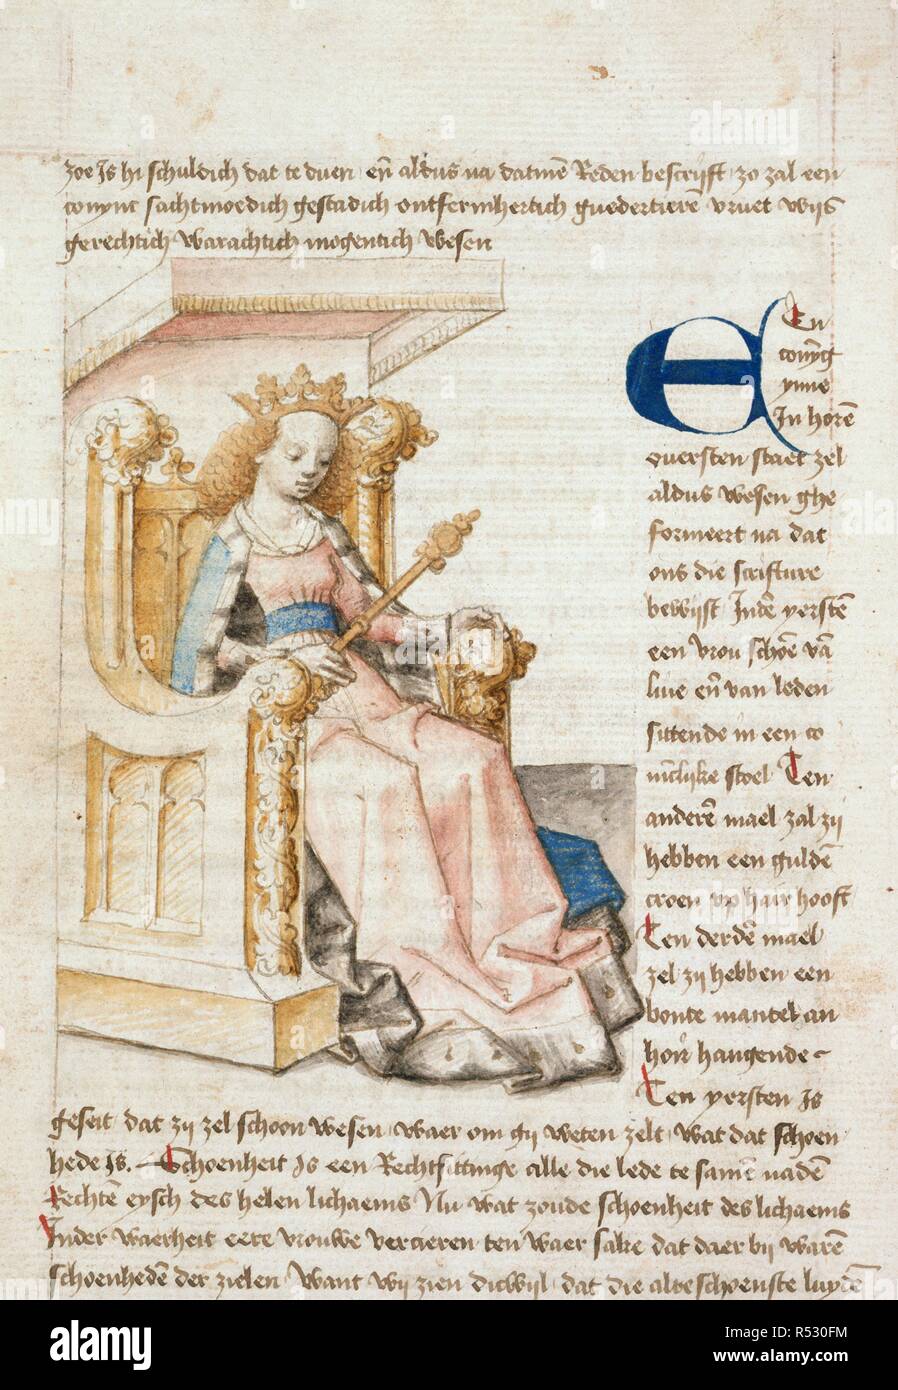 zoe Is hi schuldich dat te duen en̄ aldus na datmē Reden bescrijft zo zal een
conync sachtmoedich gestadich ontfermhertich guedertierē vruet wijs
gerechtich warachtich mogentich wesen
Een
conyg
ynne
In horē
ouersten staet zel
aldus wesen ghe
formeert na dat
ons die scrifture
bewijst Indē yerstē
een vrou schoē vā
liue en̄ van leden
sittende in een co
nīclijke stoel Ten
anderē mael zal zij
hebben een guldē
croen vp hair hooft
Ten derdē mael
zel zij hebben een
bonte mantel an
hoir hangende
Ten yersten Is
geseit dat zij zel schoon wesen waer om gij weten zelt wat dat schoen
hede Is. Schoenheit Is een Rechtsittinge alle die lede te samē nadē
Rechtē eysch des helen lichaems Nu wat zoude schoenheit des lichaems
Inder waerheit eere vrouwe vercieren ten waer sake dat daer bij warē
schoenhedē der zielen Want wij zien dicwijl dat die alreschoenste luydē
alamy
Image ID: R530FM
www.alamy.com